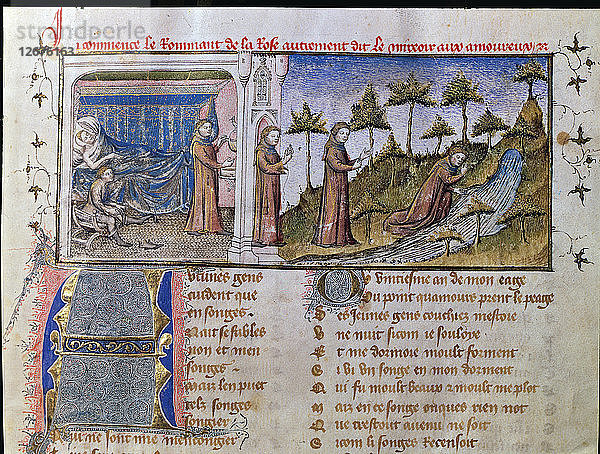 i commence le Rommant de la Rose autrement dit le miroir aux amoureux
A ucunes gens
cuident que
en songes
Nait se fables
non et men
songes
maiz len puet
telz songes
songier
Qui ne sont mie mencongier
Ou vintiesme an de mon eage
Ou point quamours prent le peage
Des jeunes gens couchiez mestoie
V ne nuit si com je souloye
E t me dormoie moult forment
E i vi un songe en mon dorment
Q ui fu moult beaux et moult me plot
M aiz en ce songe onques rien not
Q ue trestout avenu ne soit
S i com li songes recensoit